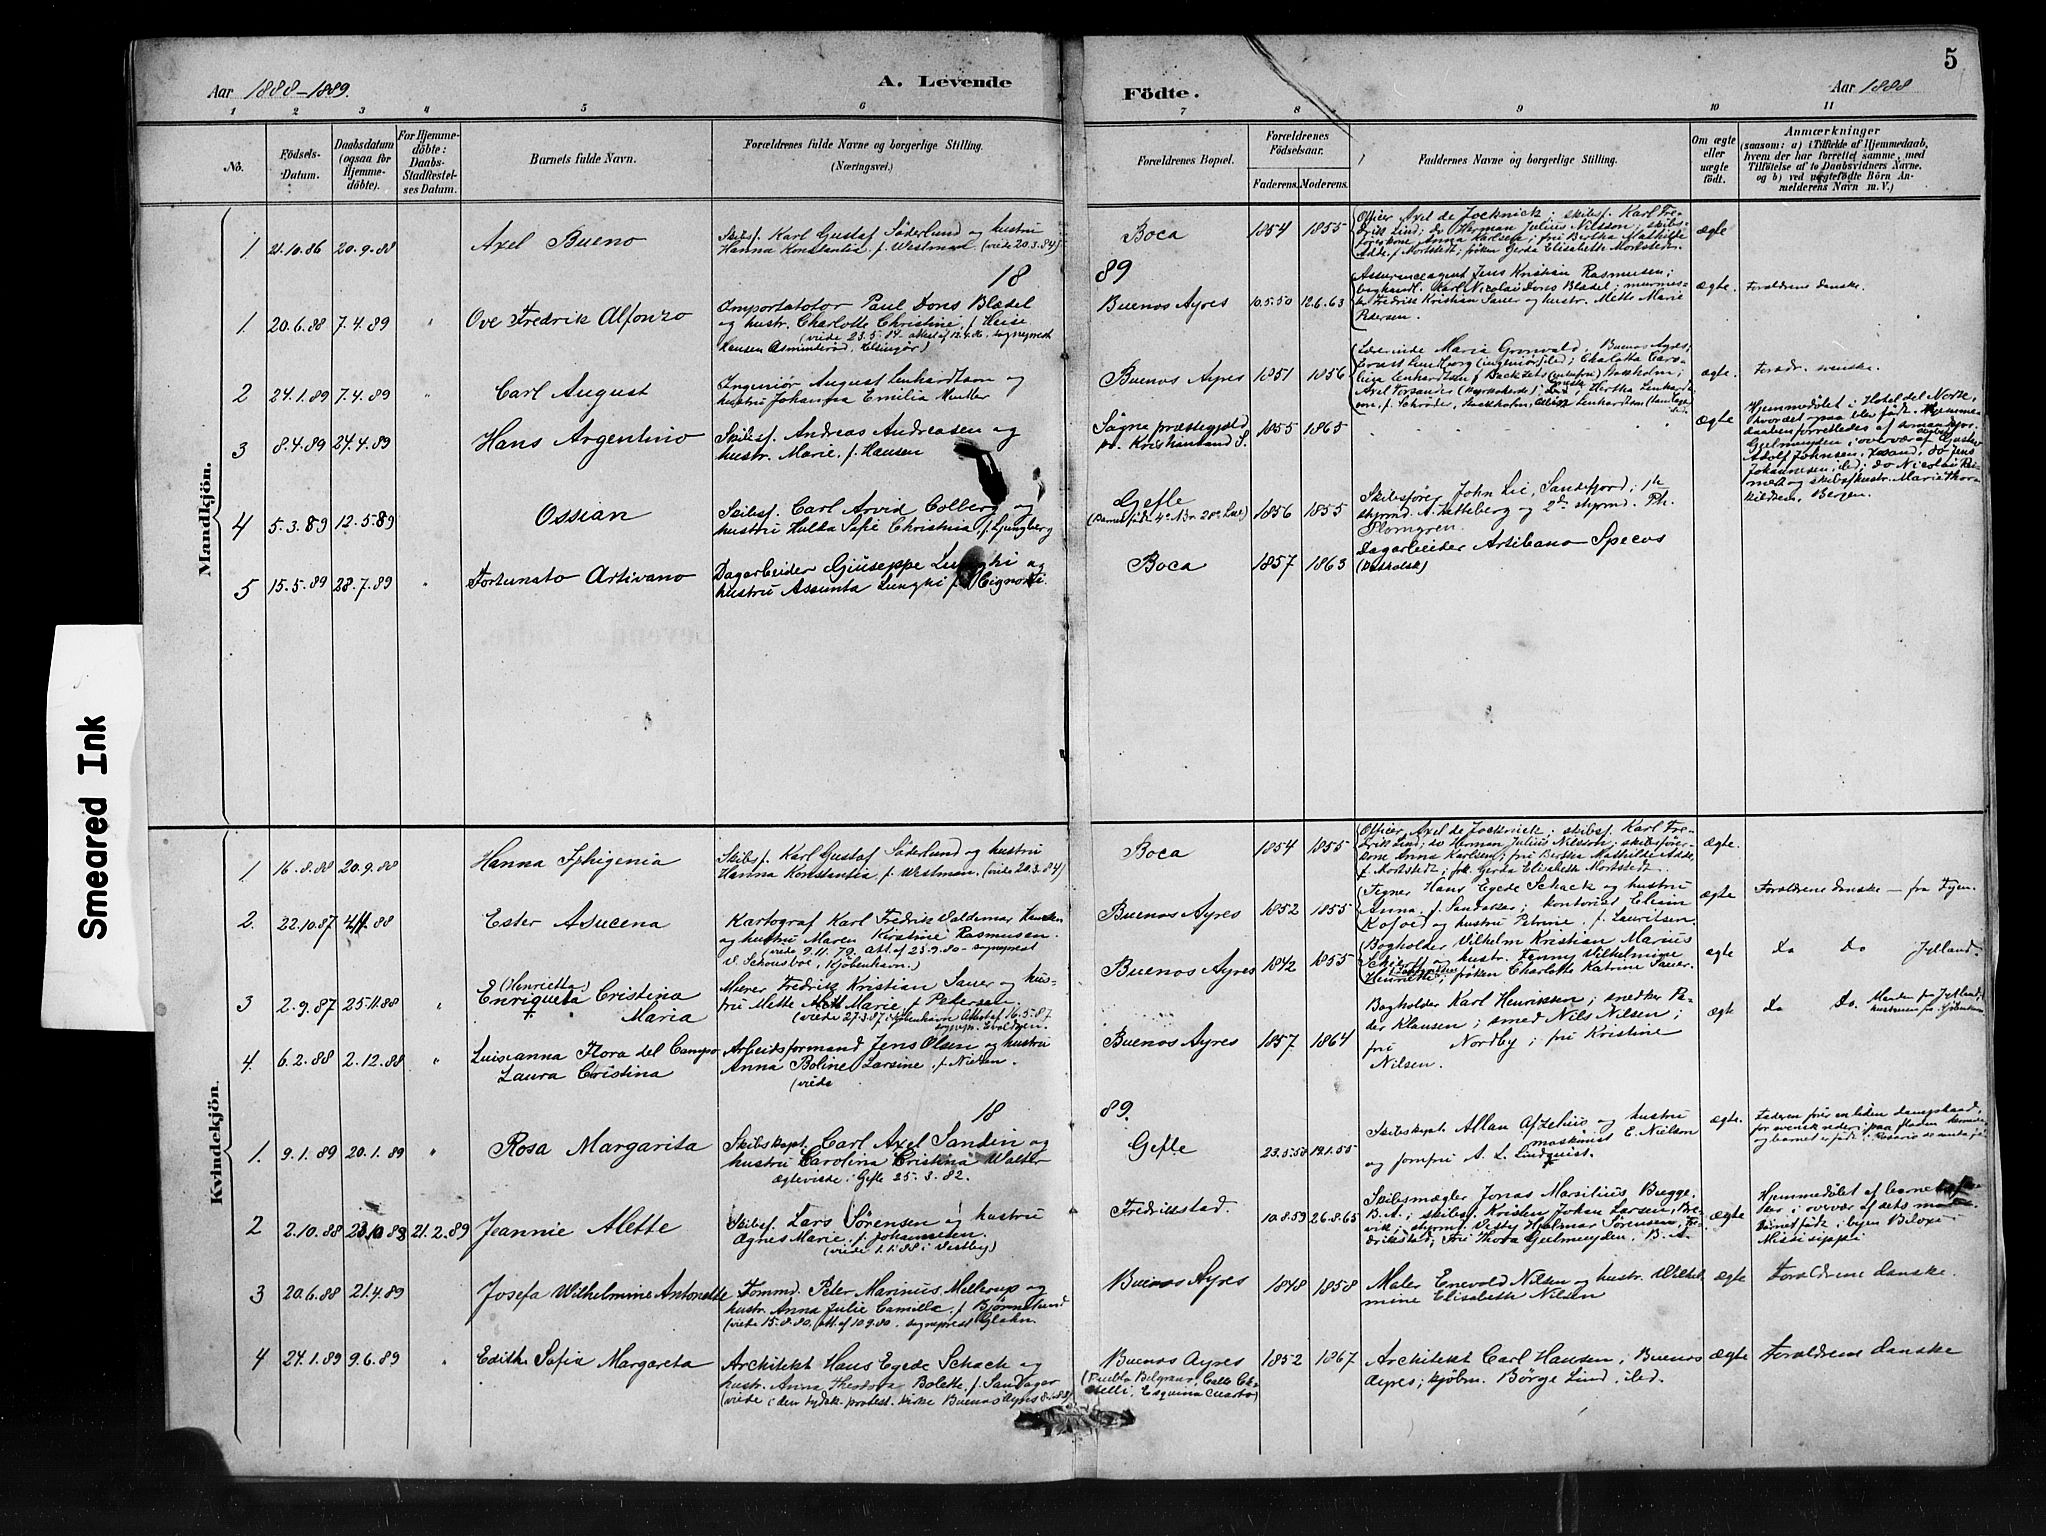 Aar 1888-1889.
A. Levende
Födte.
Aar 1888
5
1 2 3 4 5 6 7 8 9 10 11
No.
Födsels-
Datum.
Daabsdatum
(ogsaa for
Hjemme-
döbte).
For Hjemme-
döbte:
Daabs-
Stadfæstel-
ses Datum.
Barnets fulde Navn.
Forældrenes fulde Navne og borgerlige Stilling.
(Næringsvei.)
Forældrenes Bopæl.
Forældrenes
Födselsaar.
Faderens. Moderens.
Faddernes Navne og borgerlige Stilling.
Om ægte
eller
uægte
födt.
Anmærkninger
(saasom: a) i Tilfælde af Hjemmedaab,
hvem der har forrettet samme, med
Tilföielse af to Daabsvidners Navne.
og b) ved uægtefödte Börn An-
melderens Navn m. V.)
Mandkjön.
1 21.10.86 20.9.88 Axel Bueno
Skibsf. Karl Gustaf Söderlund og hustru
Hanna Konstantia f. Westman (viede 20.3.84)
Boca 1854 1855
Officer Axel de Jocknick; skibsf. Karl Fre-
drik Lind; do Herman Julius Nilsson; skibs-
førerkone Anna Karlsen; fru Bertha Mathilde
Adde f. Mortstedt; frøken Gerda Elisabeth Mortstedt.
ægte
18 89
1 20.6.88 7.4.89 " Ove Fredrik Alfonzo
Importatotor Paul Dons Blædel
og hustr. Charlotte Christine, f. Heise
(viede 23.5.84. attest af 12.4.86, sognepræst
Hansen Asminderød, Helsingør)
Buenos Ayres 10.5.50 12.6.63
Assuranceagent Jens Kristian Rasmusen;
boghandl. Karl Nicolai Dons Blædel; murmes-
ter Fredrik Kristian Sauer og hustr. Mette Marie
Pedersen.
ægte. Forældrene danske.
2 24.1.89 7.4.89 " Carl August
Ingeniør August Lenhardtson og
hustru Johanna Emilia Mutler
Buenos Ayres 1851 1856
Lærerinde Maria Gronwald, Buenos Ayres;
ægte. Forældr. svenske.
3 8.4.89 24.4.89 Hans Argentino
Skibsf. Andreas Andreasen og
hustr. Marie, f. Hansen
Søgne præstegjæld
pr. Kristiansand S. 1855 1865
ægte
Hjemmedøbt i Hotel del Norte,
4 5.3.89 12.5.89 Ossian
Skibsf. Carl Arvid Colberg og
hustru Hulda Sofie Christina f. Ljungberg
Gefle
1856 1855
Skibsfører John Lie, Sandefjord; 1ste
styrmd. A. Zetteberg og 2den styrmd. Ph.
Blomgren.
5 15.5.89 28.7.89 " Fortunato Artivano
Dagarbeider Giuseppe Lunghi og
hustru Assunta Lunghi f. Mignotti.
Boca 1857 1863
Dagarbeider Artibano Specos
(katholsk)
Smeared Ink
Kvindekjön.
1. 16.8.88 20.9.88 Hanna Iphigenia
Skibsf. Karl Gustaf Söderlund og hustru
Hanna Konstantia f. Westman. (viede 20.3.84)
Boca 1854 1855
Officer Axel de Jocknick; skibsf. Karl Fre-
drik Lind; do Herman Julius Nilsson; skibsfører-
kone Anna Karlsen; fru Bertha Mathilde Adde,
f. Mortstedt; frk. Gerda Elisabeth Mortstedt.
ægte.
2. 22.10.87 4.11.88 Ester Asucena
Kartograf Karl Fredrik Valdemar Hansen
og hustru Maren Kirstine Rasmusen.
(viede 9.11.79. Att. af 23.9.80. sognepræst
V. Schousboe, Kjöbenhavn.)
Buenos Ayres 1852 1855
Tegner Hans Egede Schack og hustru
Anna, f. Sandager; kontorist Eliam
Kofoed og hustru Petrine, f. Lauritsen.
ægte Forældrene danske – fra Fyen.
3 2.9.87 25.11.88 " (Henrietta)
Enriqueta Cristina
Maria
Murer Fredrik Kristian Sauer og hus-
tru Mette Marie f. Petersen.
(viede 27.3.87 i Kjøbenhavn Attest af 16.5.87.
Buenos Ayres 1842 1855
Bogholder Vilhelm Kristian Marius
Schiørtt og hustr. Fenny Vilhelmine
Henriette; frøken Charlotte Katrine Sauer.
ægte do Do Jylland.
4. 6.2.88 2.12.88 " Luisianna Flora del Campo
Laura Cristina
Arbeidsformand Jens Olsen og hustru
Anna Boline Larsine f. Nielsen.
(viede
Buenos Ayres 1857. 1864
Bogholder Karl Henriksen; snedker Pe-
der Klausen; smed Nils Nilsen;
fru Nordby; fru Kristine
Nilsen.
ægte do do. Manden fra Jylland,
hustruen fra Kjöbenhavn
18 89.
1. 9.1.89 20.1.89 " Rosa Margarita
Skibskapt. Carl Axel Sandin og
hustru Carolina Cristina Walter
ægteviede i Gefle 25.3.82.
Gefle
Skibskapt. Allan Afzelius og hustru
maskinist E. Nielson
og jomfru A. L. Lindquist.
ægte.
2 2.10.88 23.10.88 21.2.89 Jeannie Alette
Skibsf. Lars Sørensen og hustru
Agnes Marie, f. Johannesen.
(viede 1.1.88 i Vestby)
Fredrikstad. 10.8.59 26.8.65
Skibsmægler Jonas Marsilius Bugge,
B.A.; skibsf. Kristen Johan Larsen, Bre-
vik; styrmd. Vesty Hjalmar Sørensen, Fre-
drikstad; Fru Thora Gjelmuyden, B.A.
ægte
Hjemmedøbt af barnets
Barnet født i byen Biloxi
Missisippi
3 20.6.88 21.4.89 Josefa Wilhelmine Antonette
Tommd. Peter Marinus Mellerup og
hustr. Anna Julie Camilla, f. Bjørnelund
(viede 15.8.80, att. af 10.9.80. sognepræst Glahn.
Buenos Ayres 1848 1858
Maler Enevold Nilsen og hustr. Wilhel-
mine Elisabeth Nilsen
ægte Forældrene danske.
4 24.1.89 9.6.89 " Edith Sofia Margareta
Architekt Hans Egede Schack og
hustr. Anna Theodora Bolette, f. Sandager
(viede i den tydsk. protest. kirke Buenos Ayres 8.1.88)
Buenos Ayres
1852 1867
Architekt Carl Hansen, Buenos
Ayres; kjøbm. Börge Lind, ibd.
ægte Forældrene danske